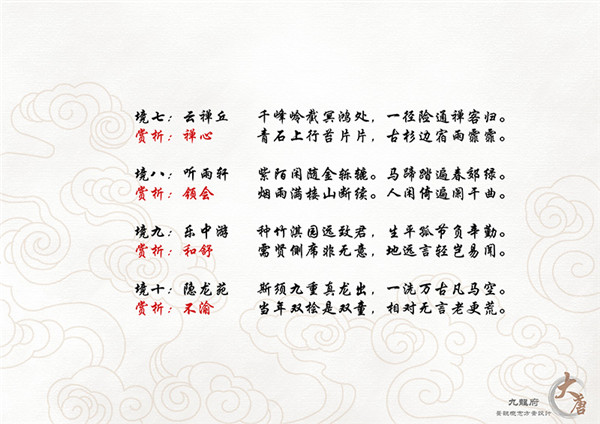 境七：云禅丘 千峰岭截冥鸿处，一径险通禅客归。
赏析：禅心 青石上行苔片片，古杉边宿雨霏霏。
境八：听雨轩 紫陌闲随金轹辘。马蹄踏遍春郊绿。
赏析：领会 烟雨满楼山断续。人闲倚遍阑干曲。
境九：乐中游 种竹淇园远致君，生平孤节负辛勤。
赏析：和舒 需贤侧席非无意，地远言轻岂易闻。
境十：隐龙苑 斯须九重真龙出，一洗万古凡马空。
赏析：不渝 当年双桧是双童，相对无言老更荒。
大唐
九龍府
景观概念方案设计